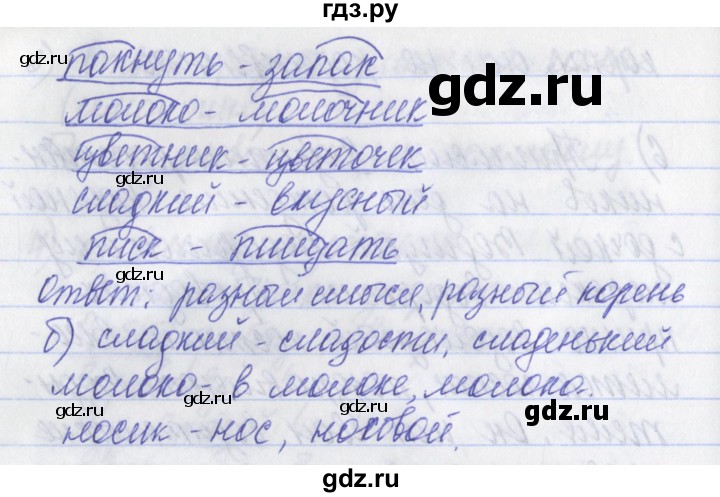 гдз.ру
пакнуть - запак
gdz.ru
gdz.ru
gdz.ru
молоко - молочник
цветник - цветочек
gdz.ru
gdz.ru
сладкий - вкусный
писк - пищать
gdz.ru
gdz.ru
Ответ: разный смысл, разный корень
б) сладкий - сладости, сладенький
gdz.ru
gdz.ru
молоко - в молоке, молока.
gdz.ru
gdz.ru
носик - нос, носовой.
gdz.ru